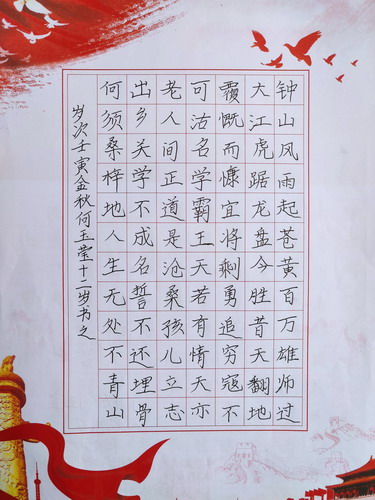 钟山风雨起苍黄百万雄师过
大江虎踞龙盘今胜昔天翻地
覆慨而慷宜将剩勇追穷寇不
可沽名学霸王天若有情天亦
老人间正道是沧桑孩儿立志
出乡关学不成名誓不还埋骨
何须桑梓地人生无处不青山
岁次壬寅金秋何玉莹十二岁书之